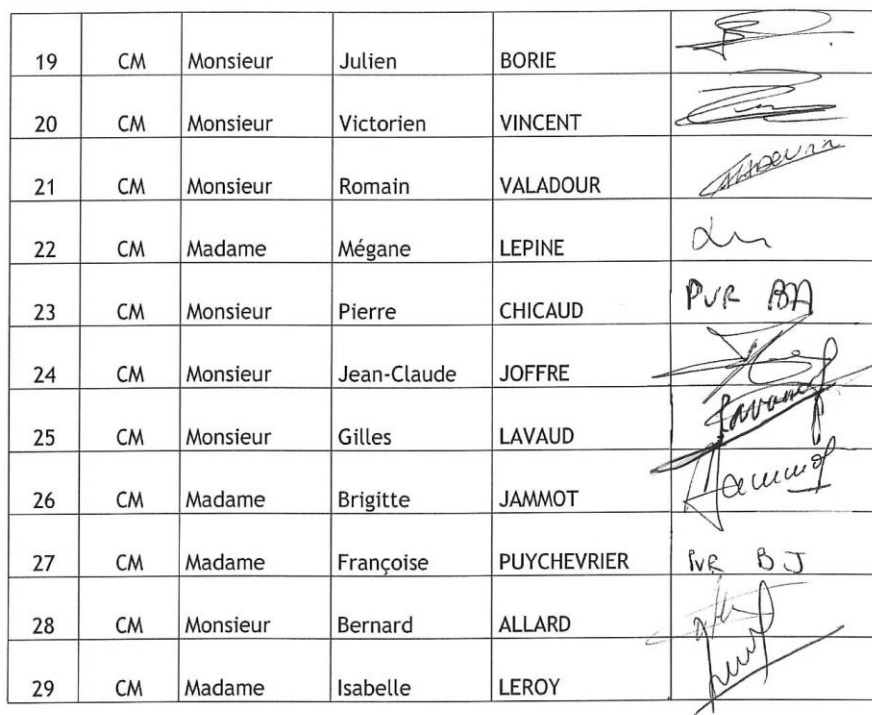 19 CM Monsieur Julien BORIE
20 CM Monsieur Victorien VINCENT
21 CM Monsieur Romain VALADOUR
22 CM Madame Mégane LEPINE
23 CM Monsieur Pierre CHICAUD PVR BA
24 CM Monsieur Jean-Claude JOFFRE
25 CM Monsieur Gilles LAVAUD
26 CM Madame Brigitte JAMMOT
27 CM Madame Françoise PUYCHEVRIER PVR BJ
28 CM Monsieur Bernard ALLARD
29 CM Madame Isabelle LEROY